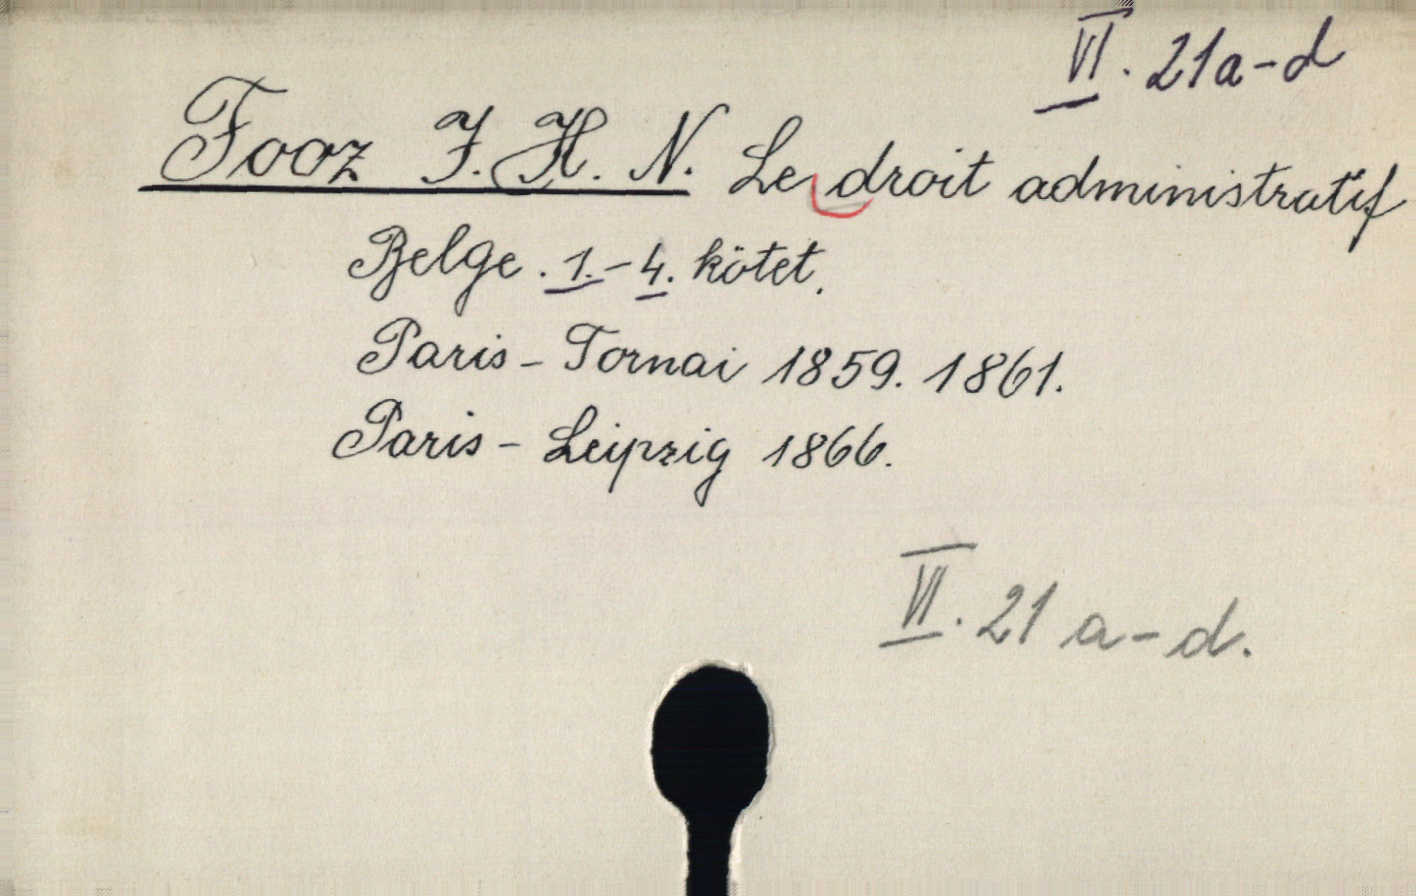 VI. 21a-d
Fooz J. H. N. Le droit administratif
Belge. 1.-4. kötet.
Paris - Tornai 1859. 1861.
Paris - Leipzig 1866.
VI. 21 a-d.